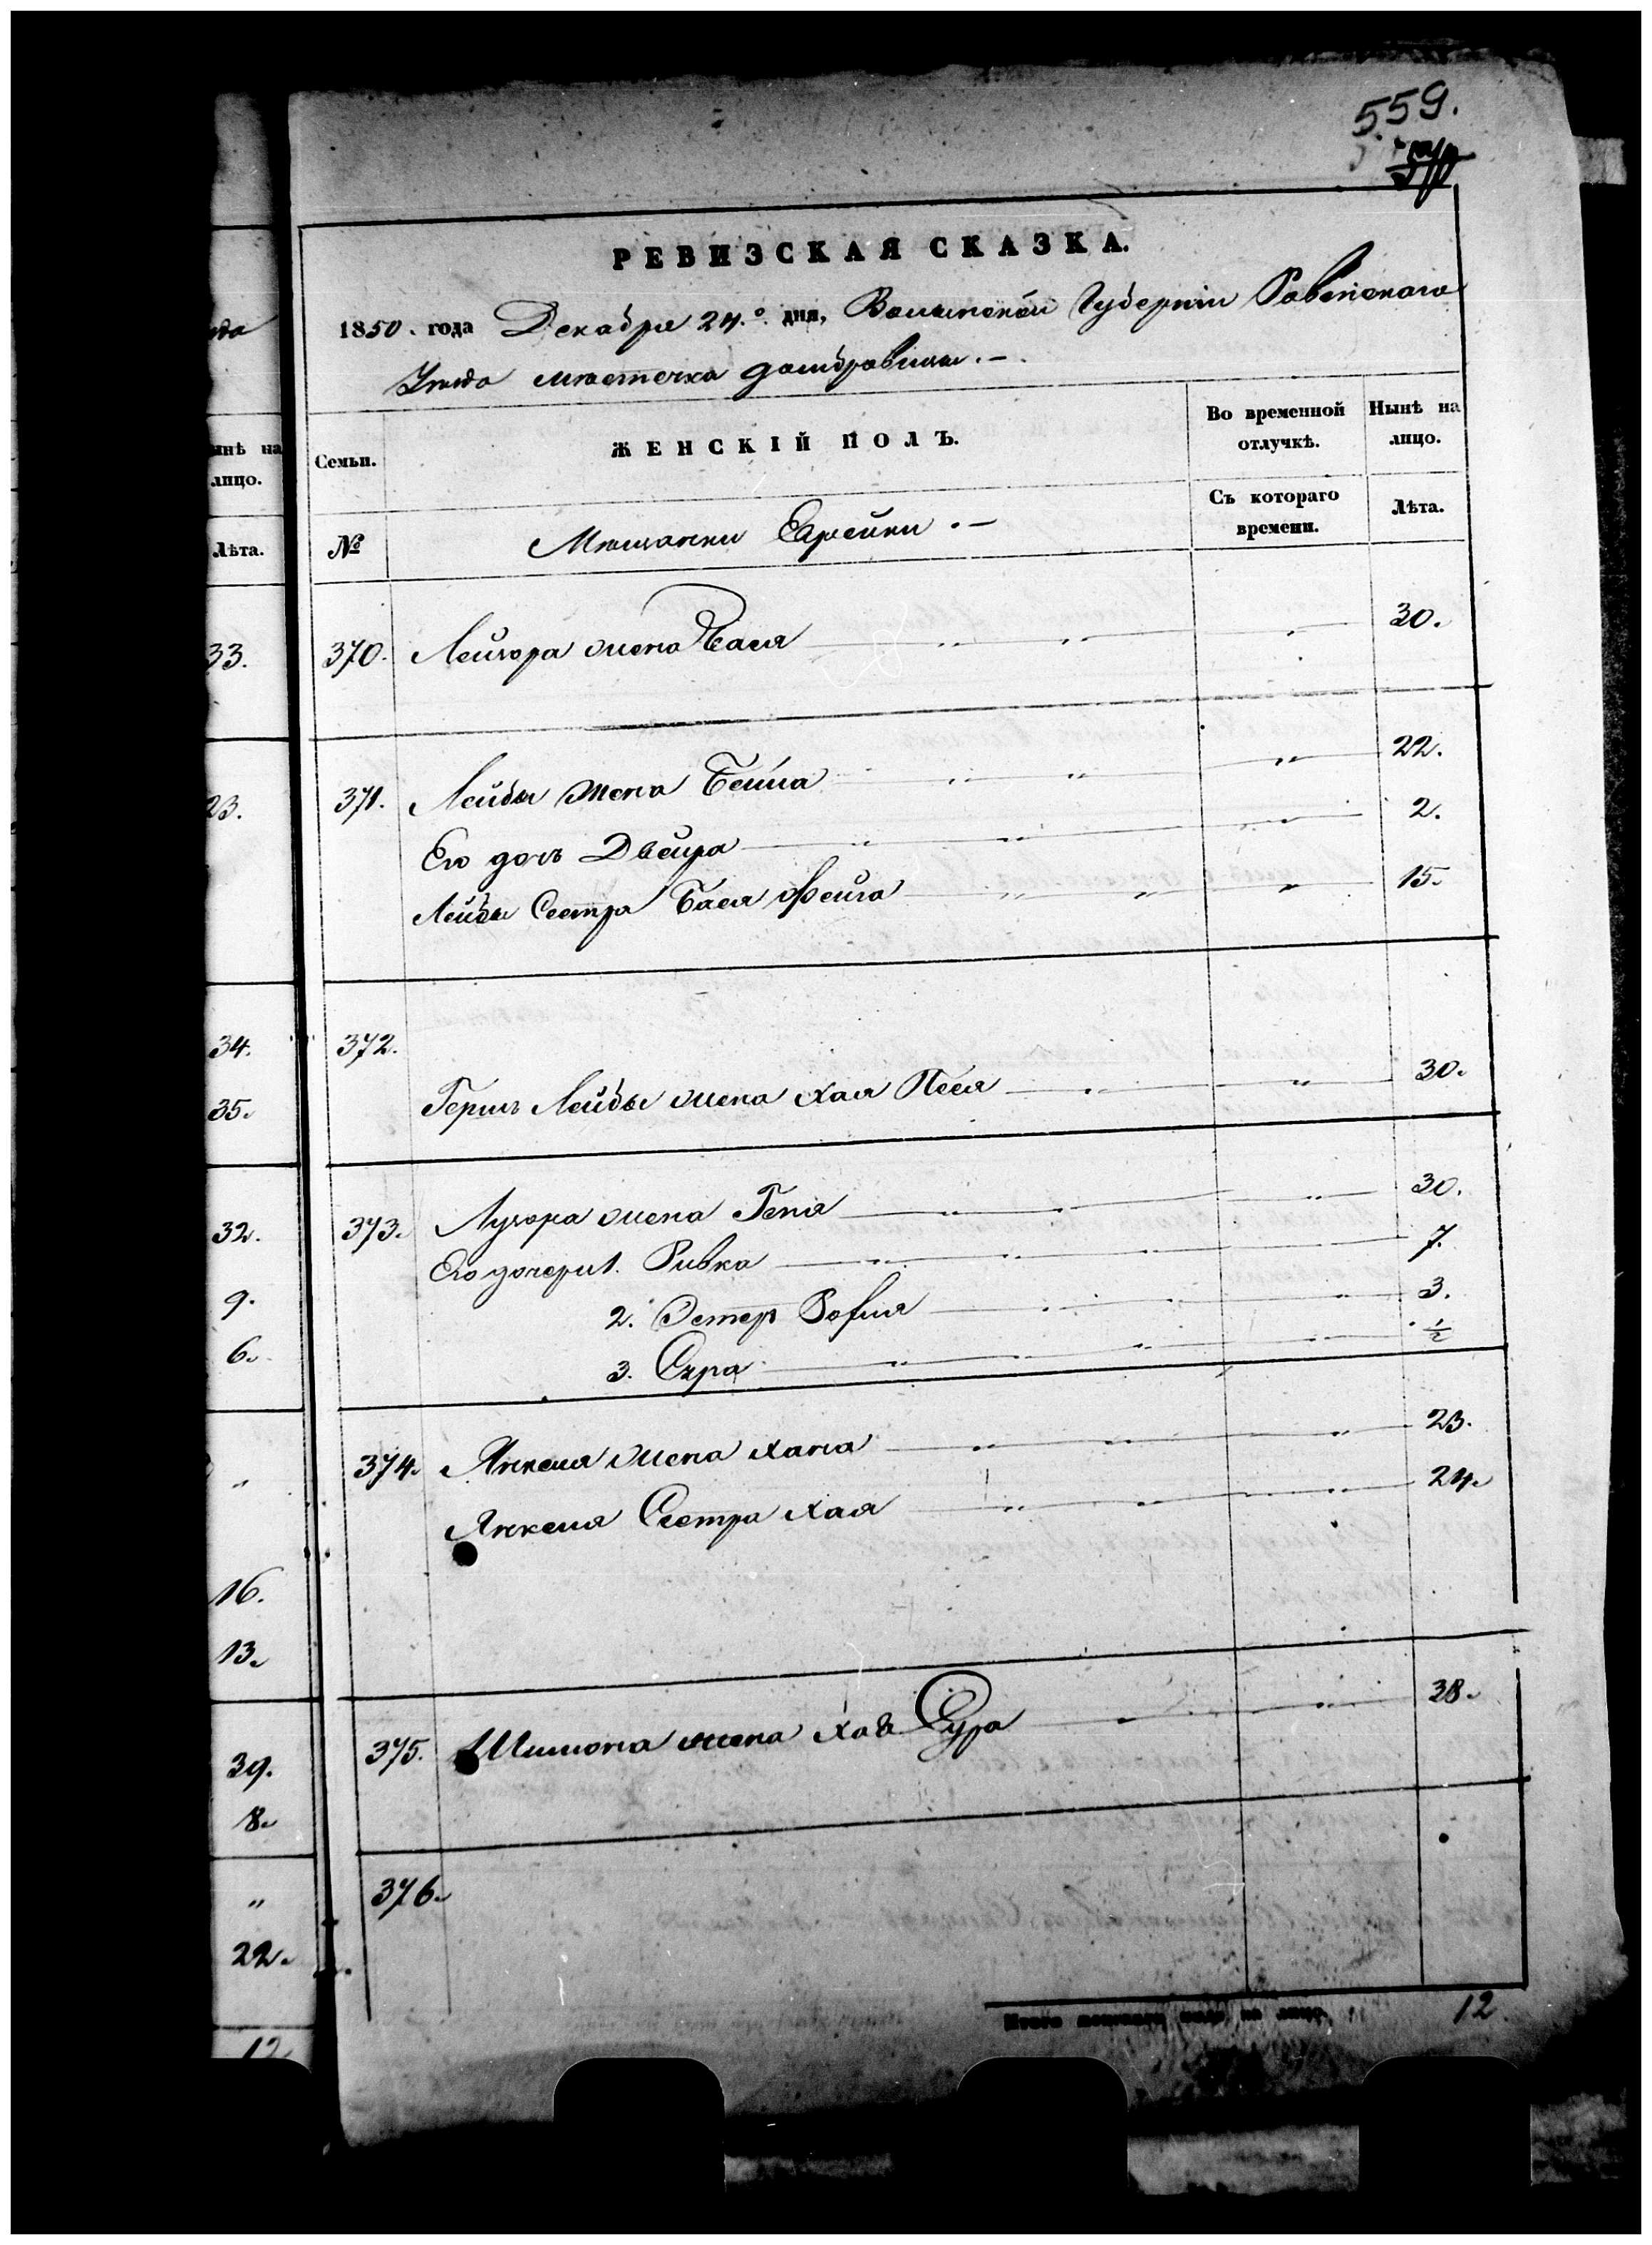 559.
РЕВИЗСКАЯ СКАЗКА.
1850. года Декабря 24.º дня, Волынской Губерніи Ровенскаго
Уезда местечка домбровицы. –
Семьи.
ЖЕНСКІЙ ПОЛЪ.
Во временной отлучкѣ.
Нынѣ на лицо.
№
Мещанки Еврейки . –
Съ котораго времени.
Лѣта.
ынѣ на
лицо.
Лѣта.
33. 370. Лейзора жена Бася " " " 30.
23. 371. Лейбы жена Бейла " " " 22.
Его дочь Двейра " " " 2.
Лейбы Сестра Бася Фейга " " " 15.
34. 372.
35. Герша Лейбы жена Хая Песя " " 30.
32. 373. Лузора жена Геня " " " 30.
9. Его дочери 1. Ривка " " " 7.
2. Эстер " " " 3.
6. 3. Сура " " " " ½
" 374. Янкеля жена Хана " " " 23.
Янкеля Сестра Хая " " " 24.
16.
13.
39. 375. Шимона жена Хая Сура " " 38.
8.
" 376.
22.
12
Итого женскаго пола на лицо 12